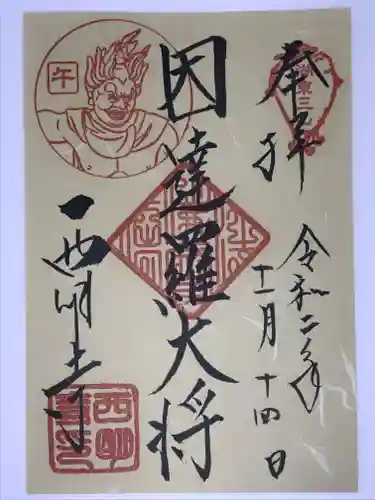 奉拝
令和二年
十一月十四日
因達羅大将
西明寺
午